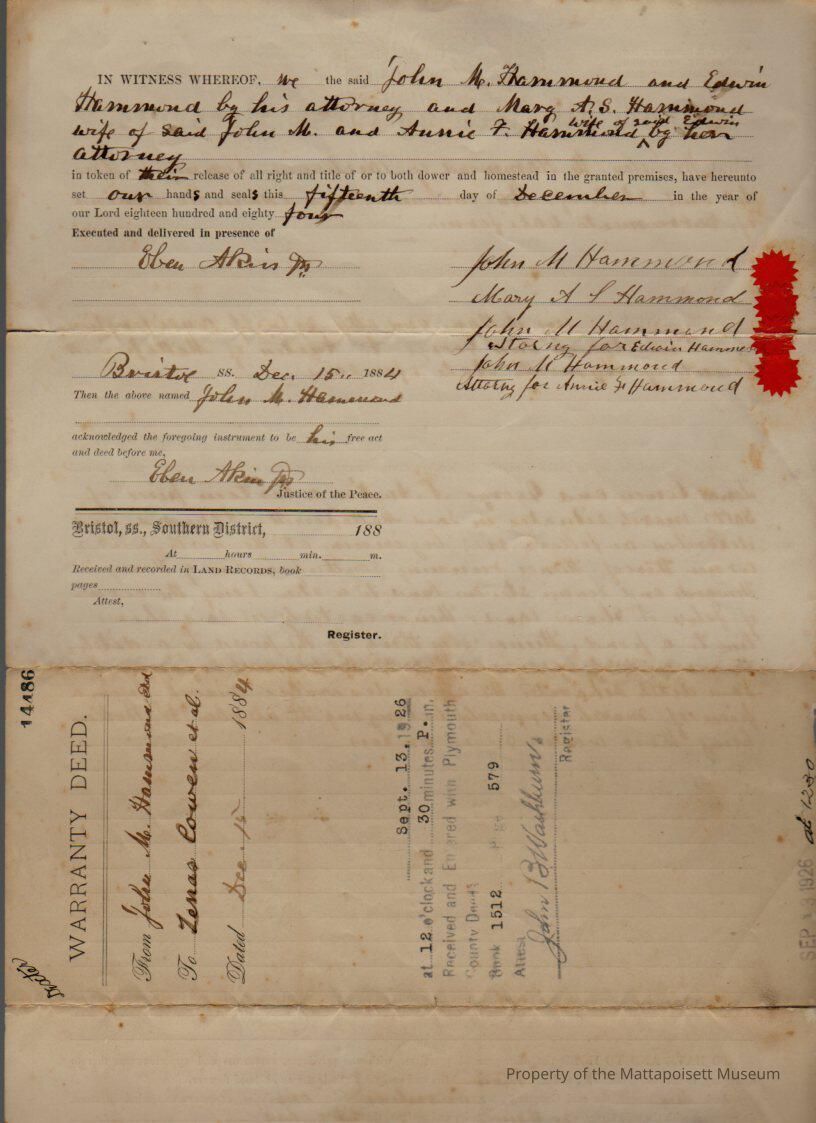 IN WITNESS WHEREOF, we the said John M. Hammond and Edwin
Hammond by his attorney and Mary A. S. Hammond
wife of said John M. and Annie F. Hammond wife of said Edwin by her
attorney
in token of their release of all right and title of or to both dower and homestead in the granted premises, have hereunto
set our hands and seals this fifteenth day of December in the year of
our Lord eighteen hundred and eighty four
Executed and delivered in presence of
Eben Akin Jr.
John M Hammond
Mary A S Hammond
John M Hammond
Attorny for Edwin Hammon
John M Hammond
Attorny for Annie F Hammond
Bristol ss. Dec. 15.. 1884
Then the above named John M. Hammond
acknowledged the foregoing instrument to be his free act
and deed before me,
Eben Akin Jr.
Justice of the Peace.
Bristol, ss., Southern District, 188
At hours min. m.
Received and recorded in LAND RECORDS, book
pages
Attest,
Register.
14486
WARRANTY DEED.
From John M. Hammond
To Zenas Cowen et al.
Dated Dec. 15 1884
Sept. 13, 1926
at 12 o'clock and 30 minutes P. m.
Received and Entered with Plymouth
County Deeds
Book 1512 Page 579
Attest
John B Washburn
Register
SEP 13 1926
at 1230
Property of the Mattapoisett Museum